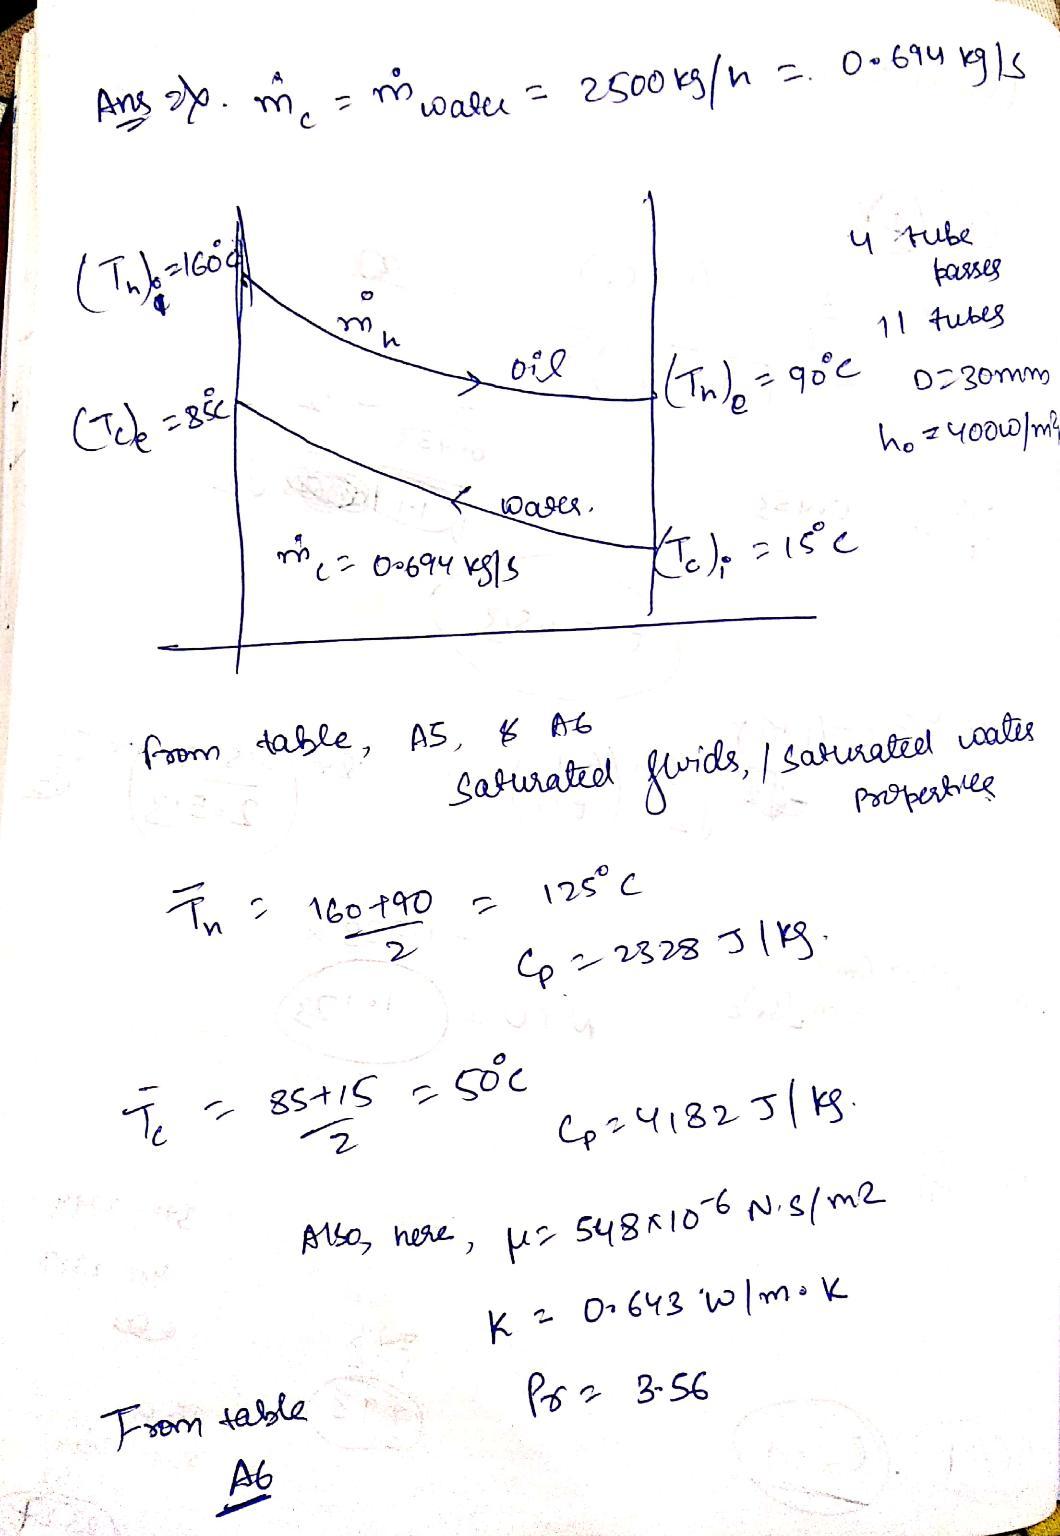 Ans ṁc = ṁ water = 2500 kg/h = 0.694 kg/s
(Th)i = 160°C
4 tube passes
11 tubes
ṁh
oil
(Th)e = 90°C
D = 30mm
(Tc)e = 85°C
ho = 400w/m²
water.
ṁc = 0.694 kg/s
(Tc)i = 15°C
from table, A5, & A6
Saturated fluids, / saturated water
properties
T̄h = 160+90/2 = 125°C
Cp = 2328 J/kg.
T̄c = 85+15/2 = 50°C
Cp = 4182 J/kg.
Also, here, μ = 548×10⁻⁶ N.s/m2
K = 0.643 w/m.K
Pr = 3.56
From table
A6